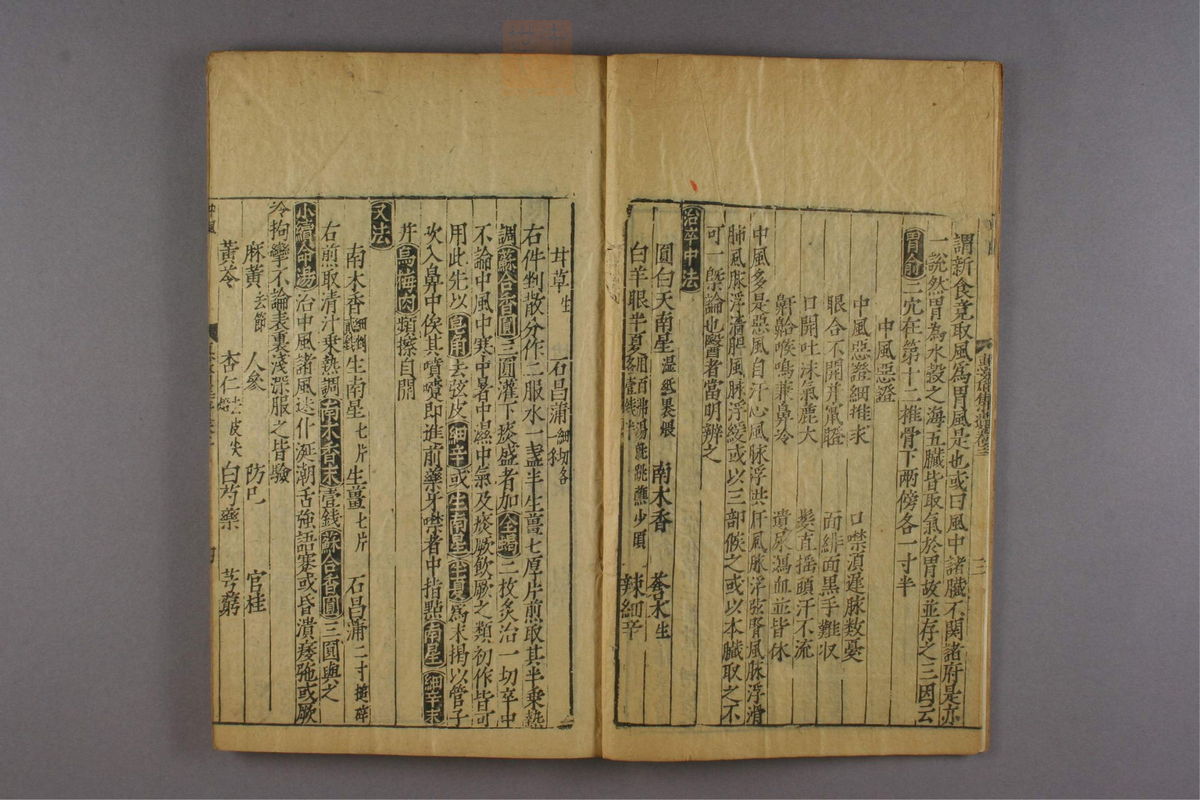 謂新食竟取風爲胃風是也或曰風中諸臟不関諸府是亦
一說然胃為水穀之海五臟皆取氣於胃故並存之三因云
胃俞二穴在第十二椎骨下兩傍各一寸半
中風惡證
中風惡證細推求 口噤湏遲脉数憂
眼合不開并鼾睡 面緋面黒手難収
口開吐沫氣麄大 髮直摇頭汗不流
鼾齁喉鳴兼鼻冷 遺尿瀉血並皆休
中風多是惡風自汗心風脉浮洪肝風脉浮弦腎風脉浮滑
肺風脉浮濇脾風脉浮緩或以三部候之或以本臟取之不
可一槩論也醫者當明辨之
治卒中法
圓白天南星湿紙裹煨 南木香 蒼术生
白羊眼半夏 辣細辛
甘草生 石昌蒲細切各
右件剉散分作二服水一盞半生薑七厚片煎取其半乗熱
調蘇合香圓三圓灌下痰盛者加全蝎二枚炙治一切卒中
不論中風中寒中暑中濕中氣及痰厥飲厥之類初作皆可
用此先以皂角去弦皮細辛或生南星半夏為末揭以管子
吹入鼻中俟其噴嚏即進前藥牙噤者中指點南星細辛末
并烏梅肉頻擦自開
又法
南木香 生南星七片 生薑七片 石昌蒲二寸搥碎
右煎取清汁乗熱調南木香末壹錢蘇合香圓三圓與之
小續命湯治中風諸風迷仆涎潮舌強語蹇或昏潰痿弛或厥
冷拘攣不論表裏淺深服之皆驗
麻黃去節 人參 防巳 官桂
黃芩 杏仁 白芍藥 芎藭